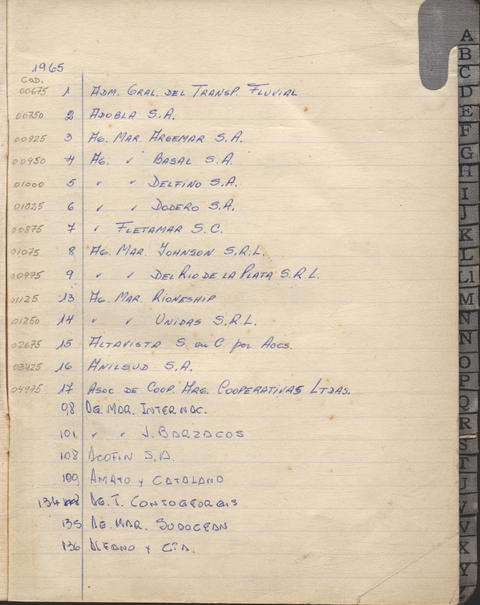 1965
COD.
00675 1 ADM. GRAL. DEL TRANSP. FLUVIAL
00750 2 ADOBLA S.A.
00925 3 AG. MAR. ARGEMAR S.A.
00950 4 AG. " BASAL S.A.
01000 5 " " DELFINO S.A.
01025 6 " " DODERO S.A.
00875 7 " FLETAMAR S.C.
01075 8 AG. MAR. JOHNSON S.R.L.
00975 9 " " DEL RIO DE LA PLATA S.R.L.
01125 13 AG. MAR. RIONESHIP
01250 14 " " UNIDAS S.R.L.
02675 15 ALTAVISTA S. en C por Accs.
03425 16 ANILSUD S.A.
04975 17 ASOC DE COOP. ARG. COOPERATIVAS LTDAS.
98 AG. MAR. INTERNAC.
101 " " J. BARZACOS
108 ACOFIN S.A.
109 AMATO Y CATALANO
134 AG. T. CONTOGEORGIS
135 AG. MAR. SUDOCEAN
136 Y CIA.
A
B
C
D
E
F
G
H
I
J
K
L
Ll
M
N
Ñ
O
P
Q
R
S
T
V
X
Y